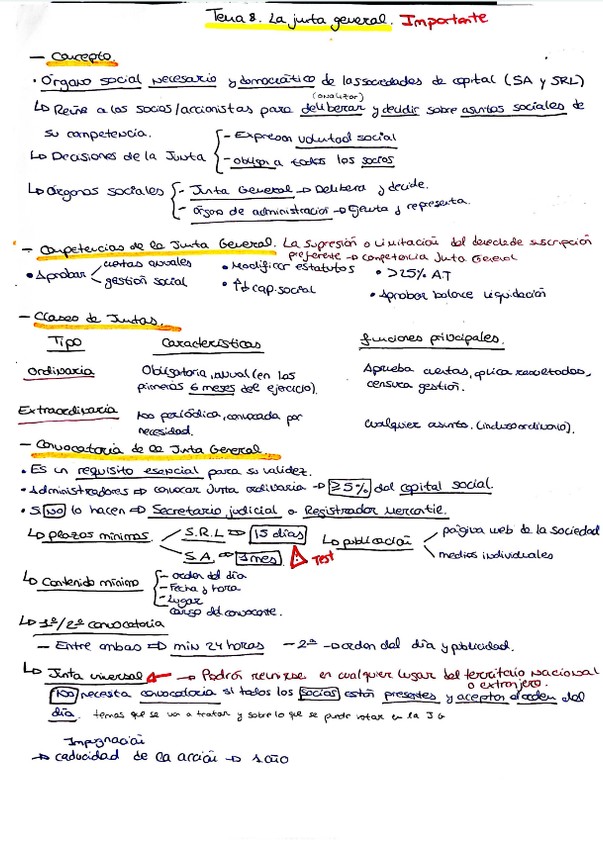 Tema 8. La junta general. Importante
- Concepto.
• Órgano social necesario y democrático de las sociedades de capital (SA y SRL)
(analizar)
↳ Reúne a los socios/accionistas para deliberar y decidir sobre asuntos sociales de
su competencia.
↳ Decisiones de la Junta
- Expresan voluntad social
- obligan a todos los socios
↳ Órganos sociales
- Junta General → Delibera y decide.
- Órgano de administración → Ejecuta y representa.
- Competencias de la Junta General. La supresión o limitación del derecho de suscripción
preferente → competencia Junta General
• Aprobar
cuentas anuales
gestión social
• Modificar estatutos
• ↑↓ cap. social
• >25% AT
• Aprobar balance liquidación
- Clases de Juntas.
Tipo Características funciones principales.
Ordinaria Obligatoria, anual (en los
primeros 6 meses del ejercicio).
Aprueba cuentas, aplica resultados,
censura gestión.
Extraordinaria No periódica, convocada por
necesidad.
Cualquier asunto. (incluso ordinario).
- Convocatoria de la Junta General.
• Es un requisito esencial para su validez.
• Administradores ⇒ convocar Junta ordinaria ⇒ ≥5% del capital social.
• Si no lo hacen ⇒ Secretario judicial o Registrador Mercantil.
↳ plazos mínimos
S.R.L ⇒ 15 días
S.A. ⇒ 1 mes
Test
↳ publicación
página web de la sociedad
medios individuales
↳ Contenido mínimo
- orden del día
- Fecha y hora
- Lugar
cargo del convocante.
↳ 1ª/2ª convocatoria
- Entre ambas ⇒ min 24 horas - 2ª → orden del día y publicidad.
↳ Junta universal ← → Podrá reunirse en cualquier lugar del territorio nacional
o extranjero.
No necesita convocatoria si todos los socios están presentes y aceptan el orden del
día. temas que se van a tratar y sobre lo que se puede votar en la JG
Impugnación
→ caducidad de la acción → 1 año